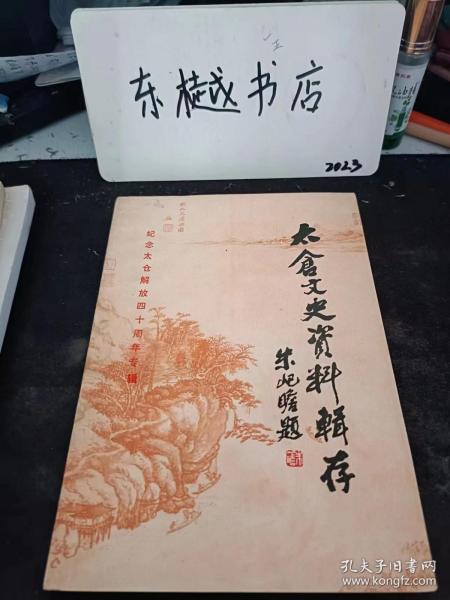 东樾书店
2023
太倉文史資料輯存
朱屺瞻題
纪念太仓解放四十周年专辑
孔夫子旧书网
www.kongfz.com